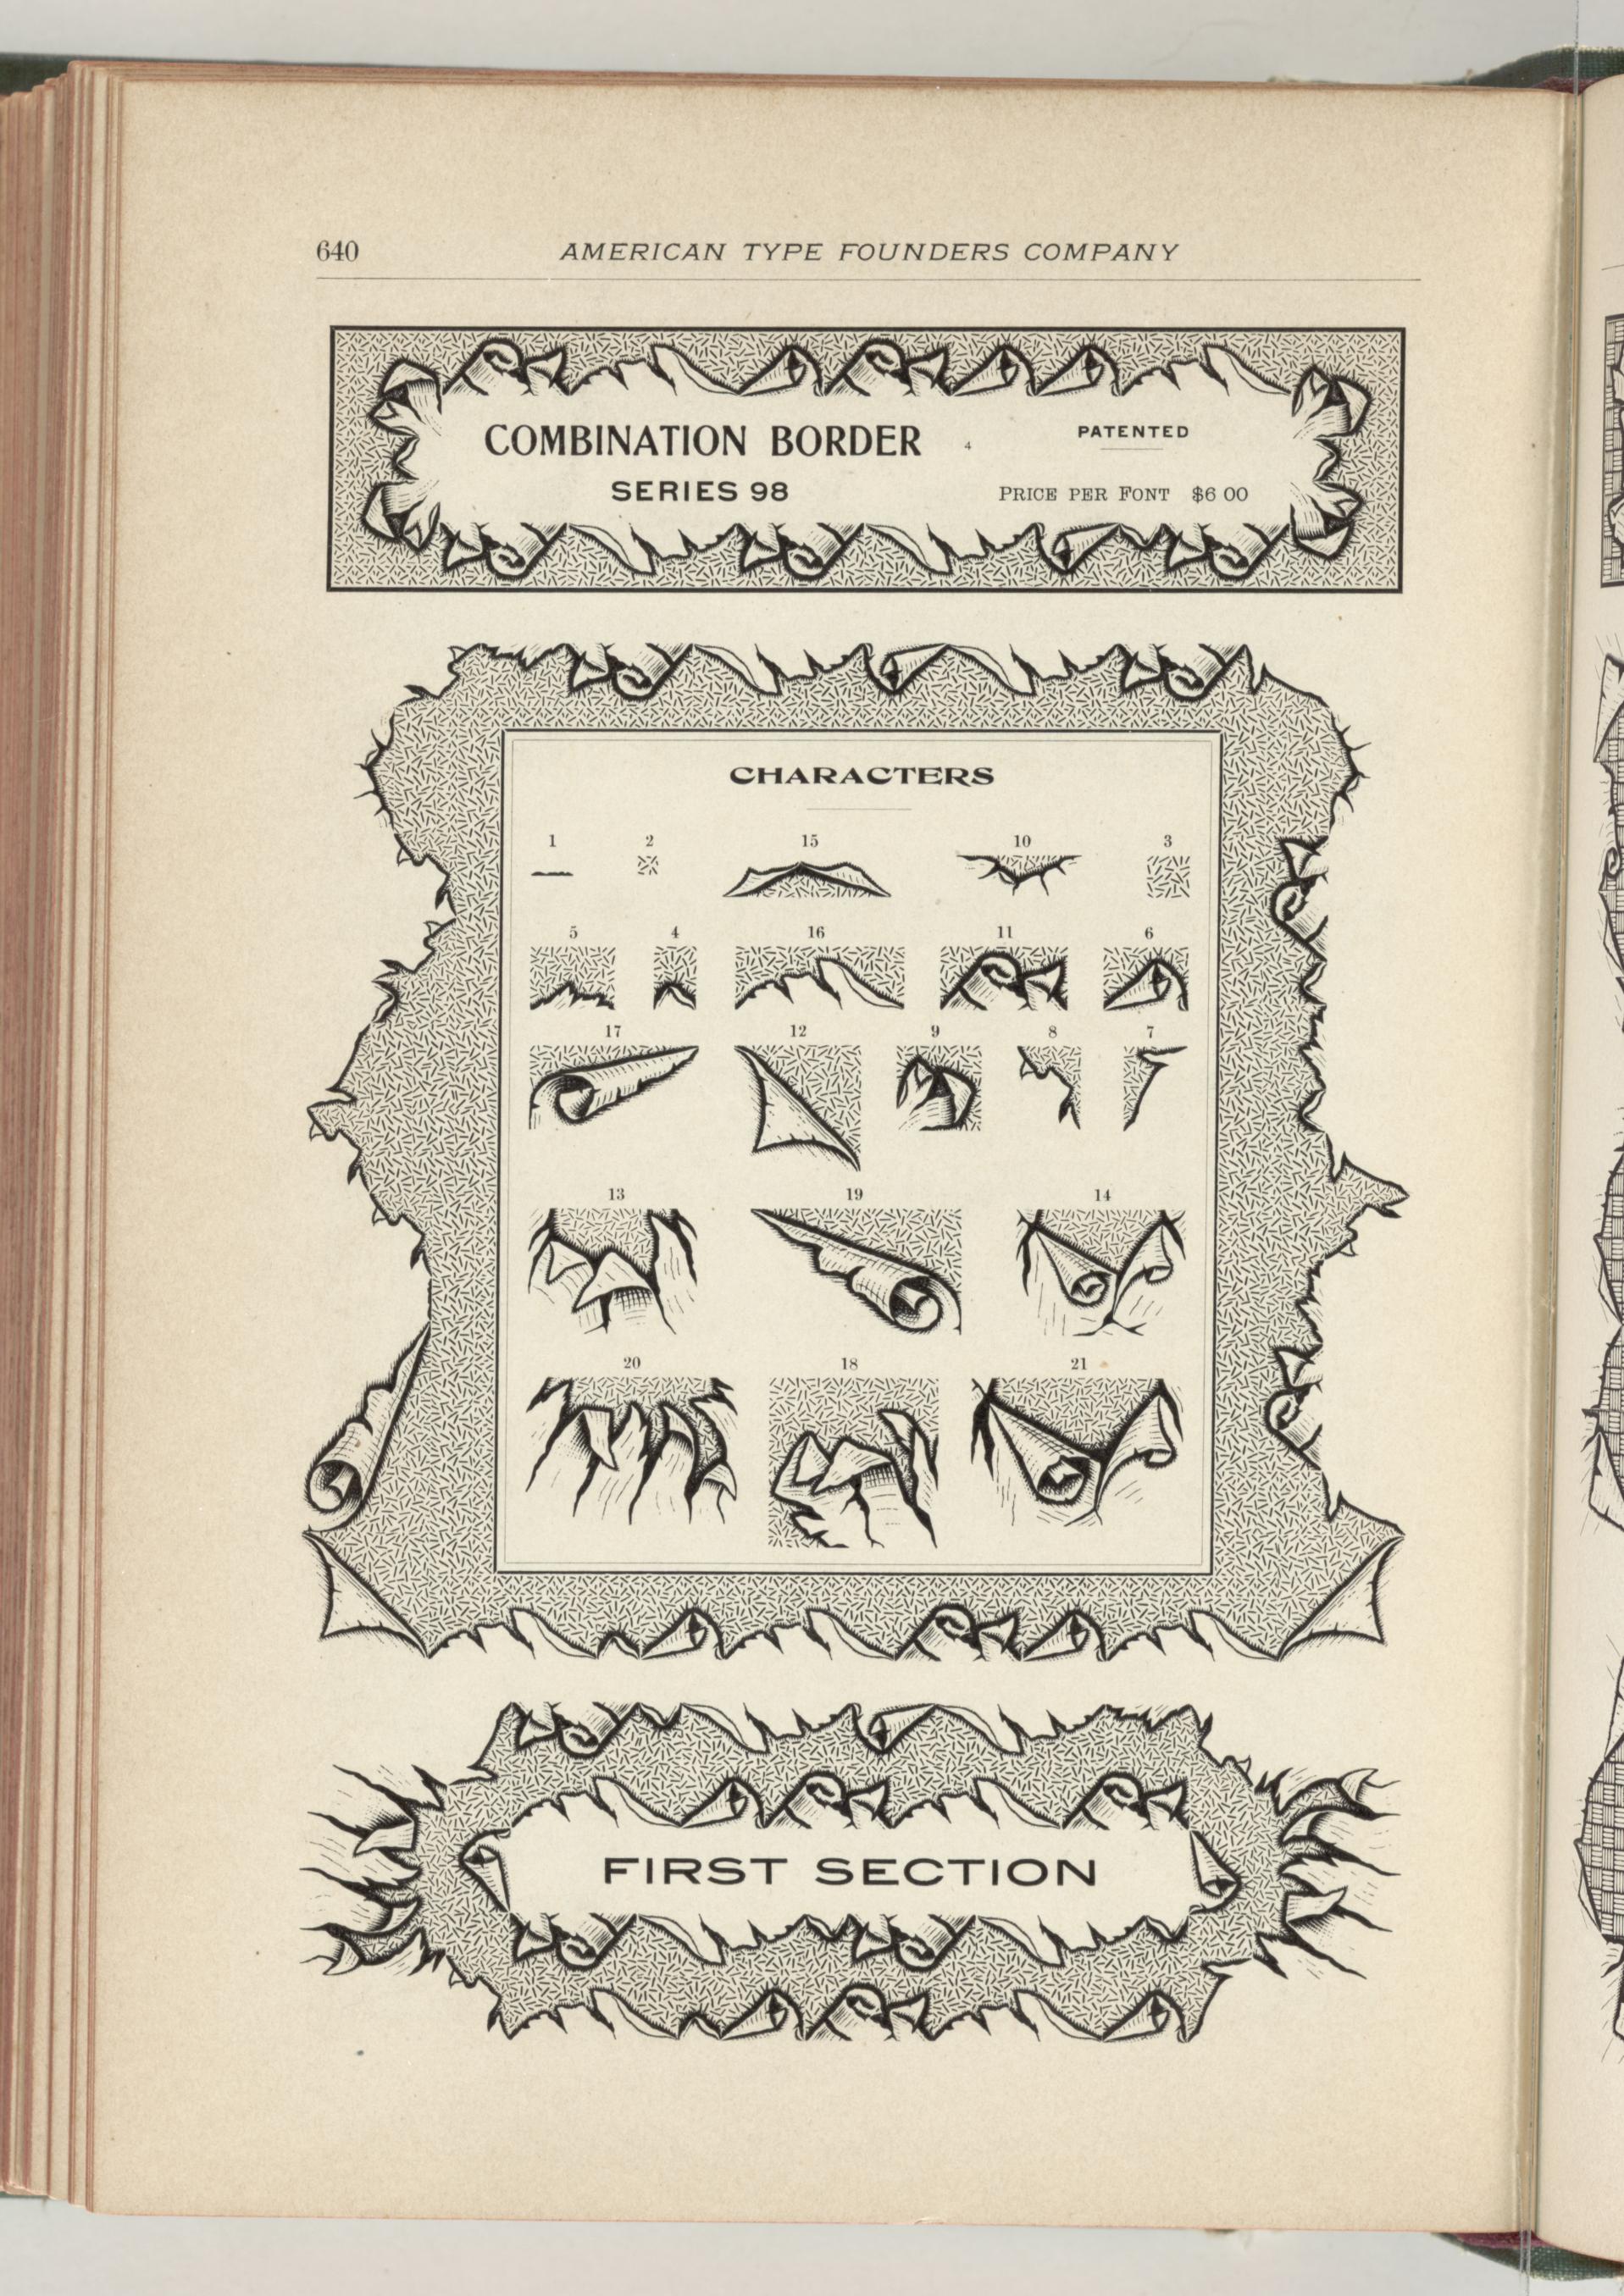 640 AMERICAN TYPE FOUNDERS COMPANY
COMBINATION BORDER
SERIES 98
4
PATENTED
PRICE PER FONT $6 00
CHARACTERS
1 2 15 10 3
5 4 16 11 6
17 12 9 8 7
13 19 14
20 18 21
FIRST SECTION